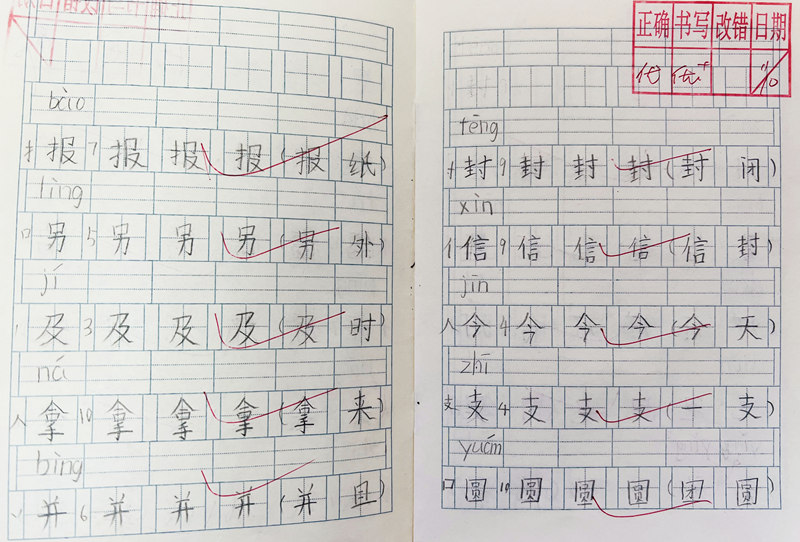 bào
扌报7报报报(报纸)
lìng
口另5另另另(另外)
jí
及3及及及(及时)
ná
人拿10拿拿拿(拿来)
bìng
丷并6并并并(并且)
正确 书写 改错 日期
优 优+
fēng
封9封封封(封闭)
xìn
亻信9信信信(信封)
jīn
人今4今今今(今天)
zhī
支支4支支支(一支)
yuán
口圆10圆圆圆(团圆)